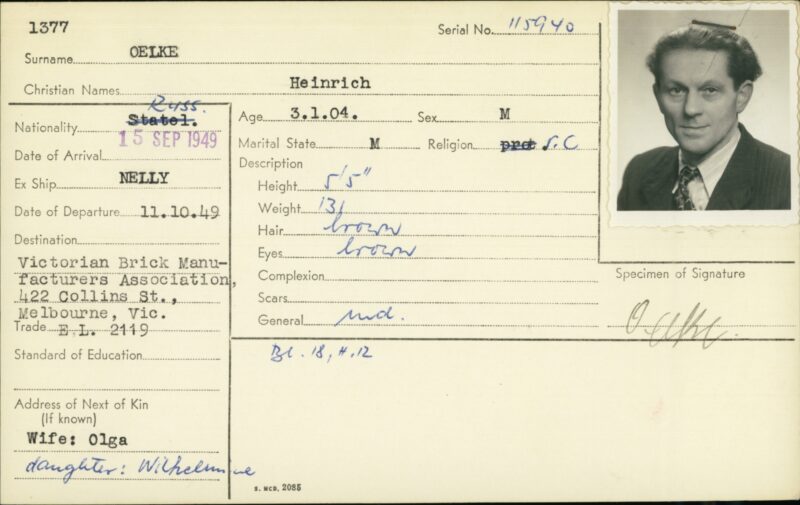 1377
Serial No. 115940
Surname OELKE
Christian Names Heinrich
Russ.
Nationality Statel.
15 SEP 1949
Date of Arrival
Ex Ship NELLY
Date of Departure 11.10.49
Destination
Victorian Brick Manu-
facturers Association,
422 Collins St.,
Melbourne, Vic.
Trade E.L. 2119
Standard of Education
Address of Next of Kin
(If known)
Wife: Olga
daughter: Wilhelmine
Age 3.1.04. Sex M
Marital State M Religion prot S.C
Description
Height 5'5"
Weight 131
Hair brown
Eyes brown
Complexion
Scars
General md.
Bl. 18, H.12
S. MCD. 2085
Specimen of Signature
Oelke